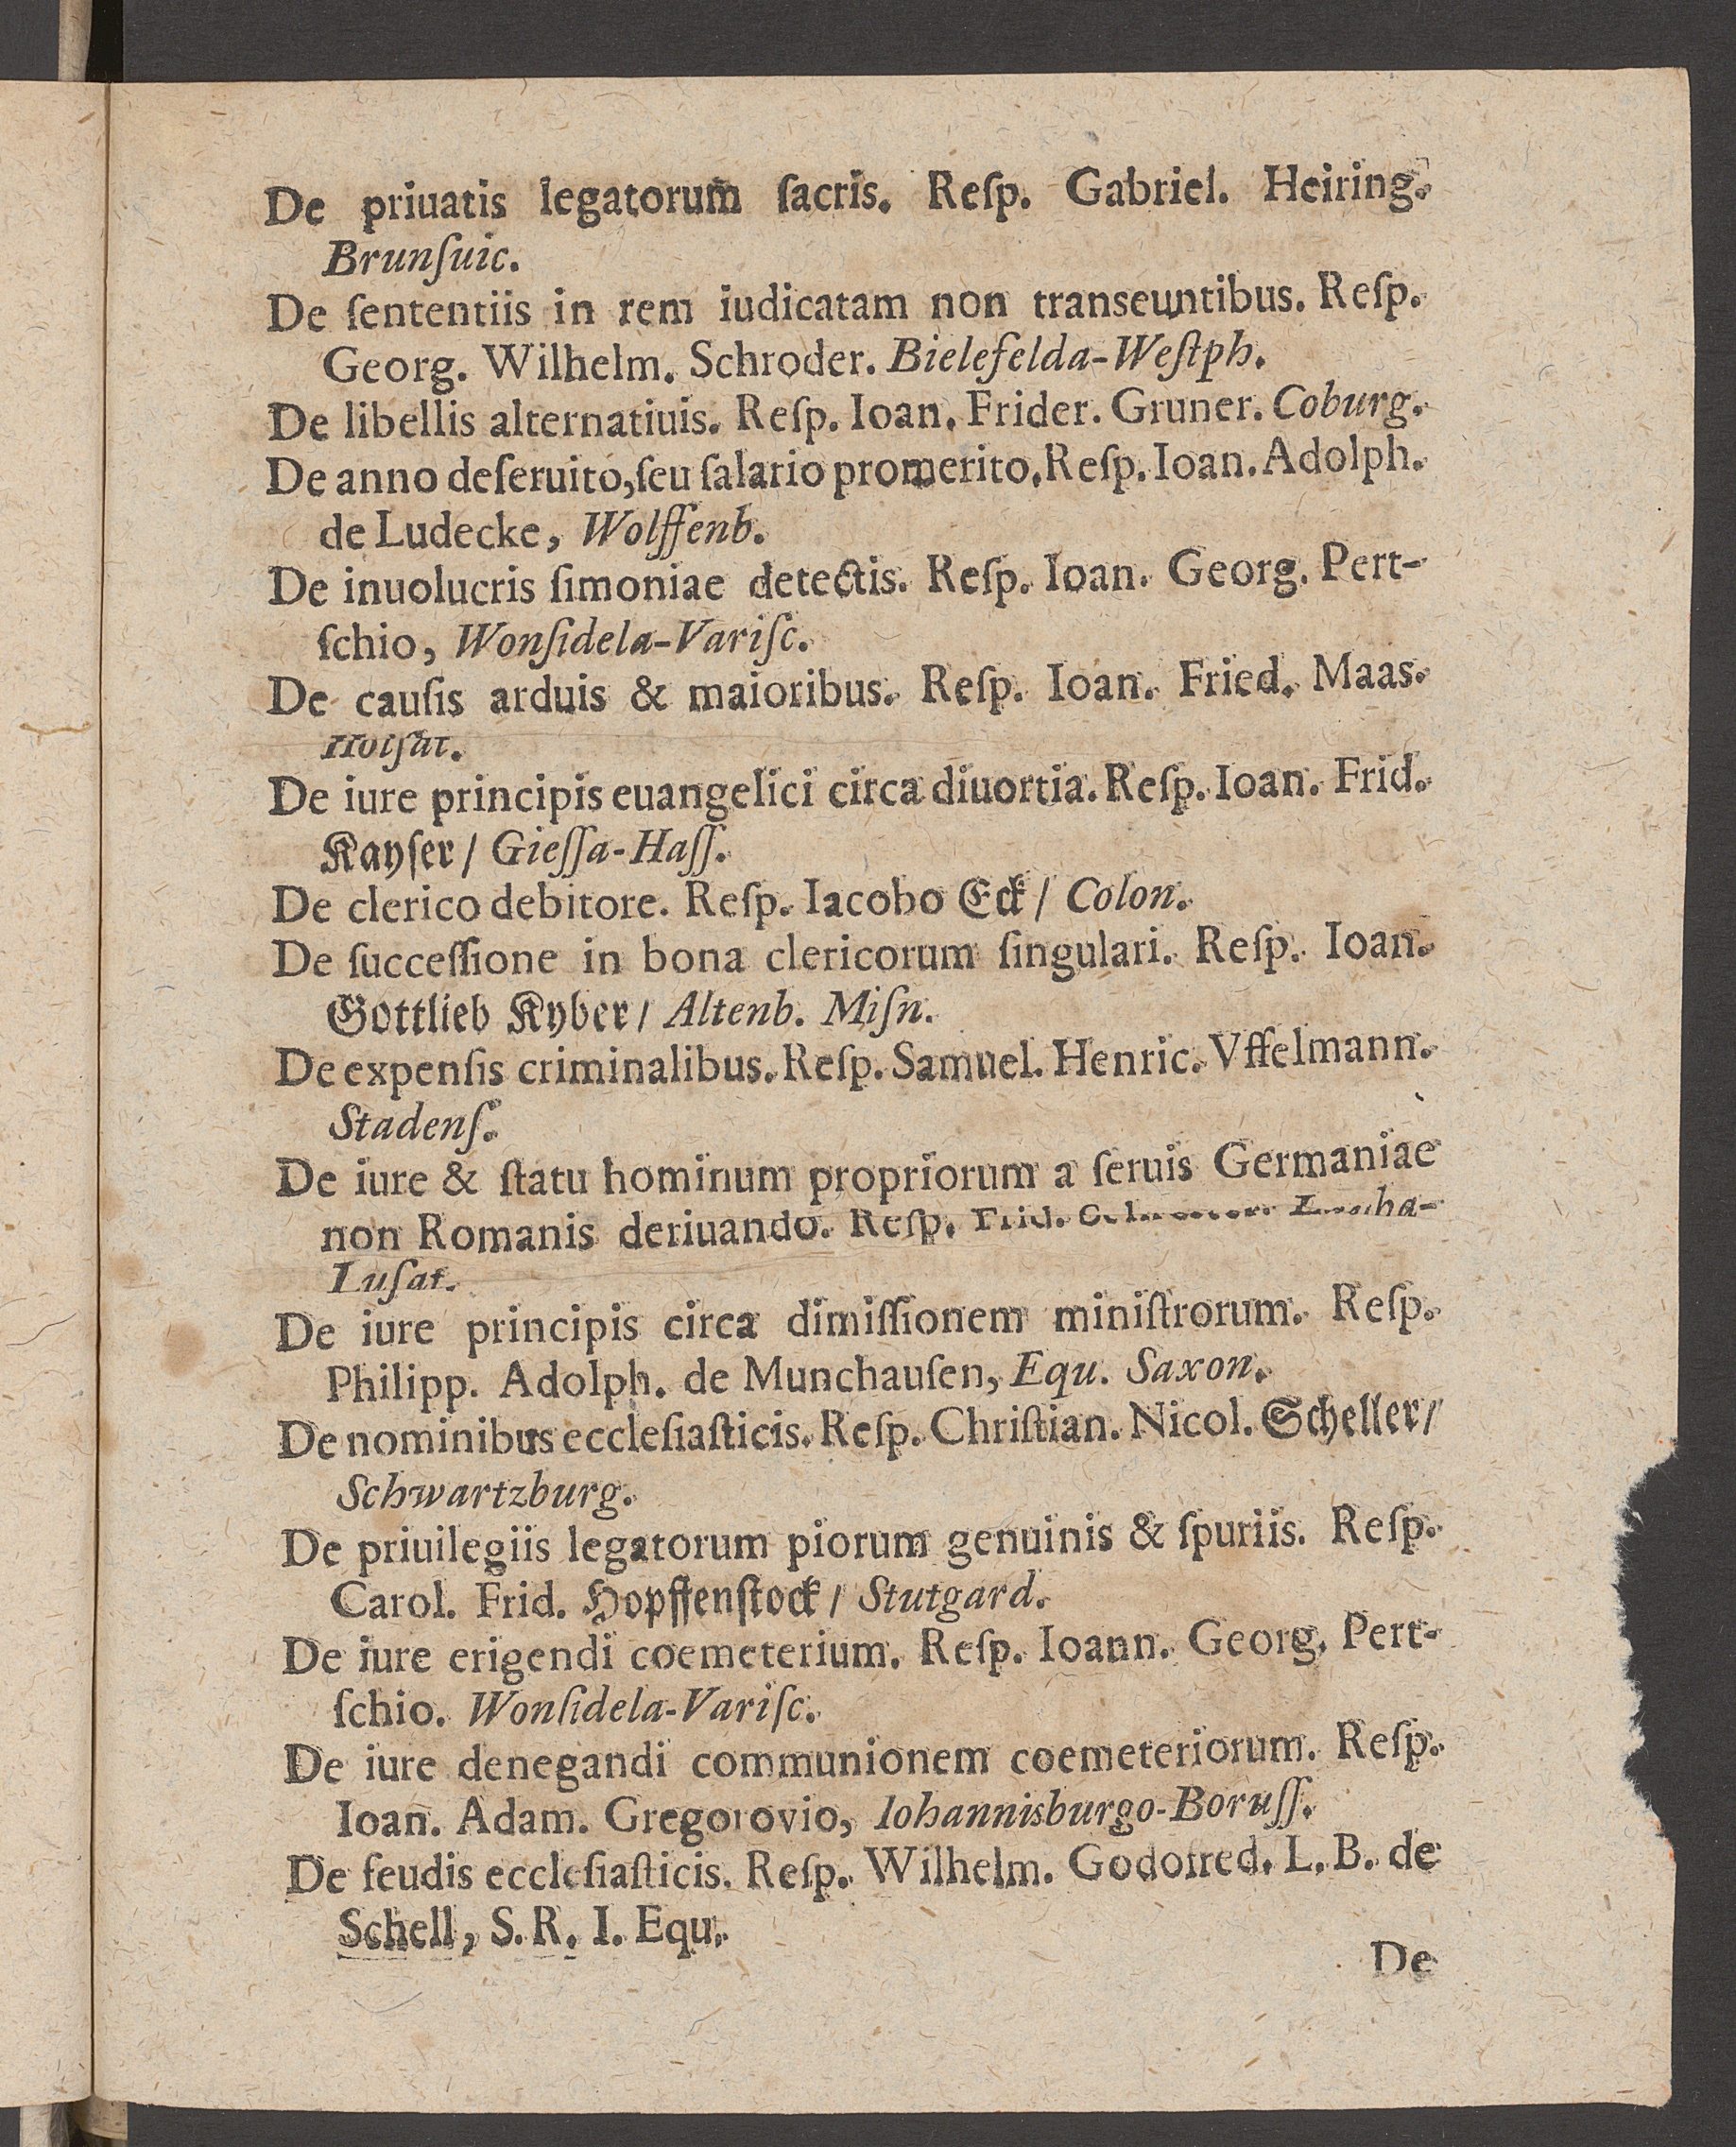 De priuatis legatorum ſacris. Reſp. Gabriel. Heiring.
Brunſuic.
De ſententiis in rem iudicatam non transeuntibus. Reſp.
Georg. Wilhelm. Schroder. Bielefelda-Weſtph.
De libellis alternatiuis. Reſp. Ioan. Frider. Gruner. Coburg.
De anno deſeruito, ſeu ſalario promerito. Reſp. Ioan. Adolph.
de Ludecke, Wolffenb.
De inuolucris ſimoniae detectis. Reſp. Ioan. Georg. Pert-
ſchio, Wonſidela-Variſc.
De cauſis arduis & maioribus. Reſp. Ioan. Fried. Maas.
Holſat.
De iure principis euangelici circa diuortia. Reſp. Ioan. Frid.
Kayſer / Gieſſa-Haſſ.
De clerico debitore. Reſp. Iacobo Eck / Colon.
De ſucceſſione in bona clericorum ſingulari. Reſp. Ioan.
Gottlieb Kyber / Altenb. Miſn.
De expenſis criminalibus. Reſp. Samuel. Henric. Vffelmann.
Stadenſ.
De iure & ſtatu hominum propriorum a ſeruis Germaniae
non Romanis deriuando. Reſp. Frid.
Luſat.
De iure principis circa dimiſſionem miniſtrorum. Reſp.
Philipp. Adolph. de Munchauſen, Equ. Saxon.
De nominibus eccleſiaſticis. Reſp. Chriſtian. Nicol. Scheller /
Schwartzburg.
De priuilegiis legatorum piorum genuinis & ſpuriis. Reſp.
Carol. Frid. Hopffenſtock / Stutgard.
De iure erigendi coemeterium. Reſp. Ioann. Georg. Pert-
ſchio. Wonſidela-Variſc.
De iure denegandi communionem coemeteriorum. Reſp.
Ioan. Adam. Gregorovio, Iohannisburgo-Boruſſ.
De feudis eccleſiaſticis. Reſp. Wilhelm. Godofred. L. B. de
Schell, S. R. I. Equ.
De